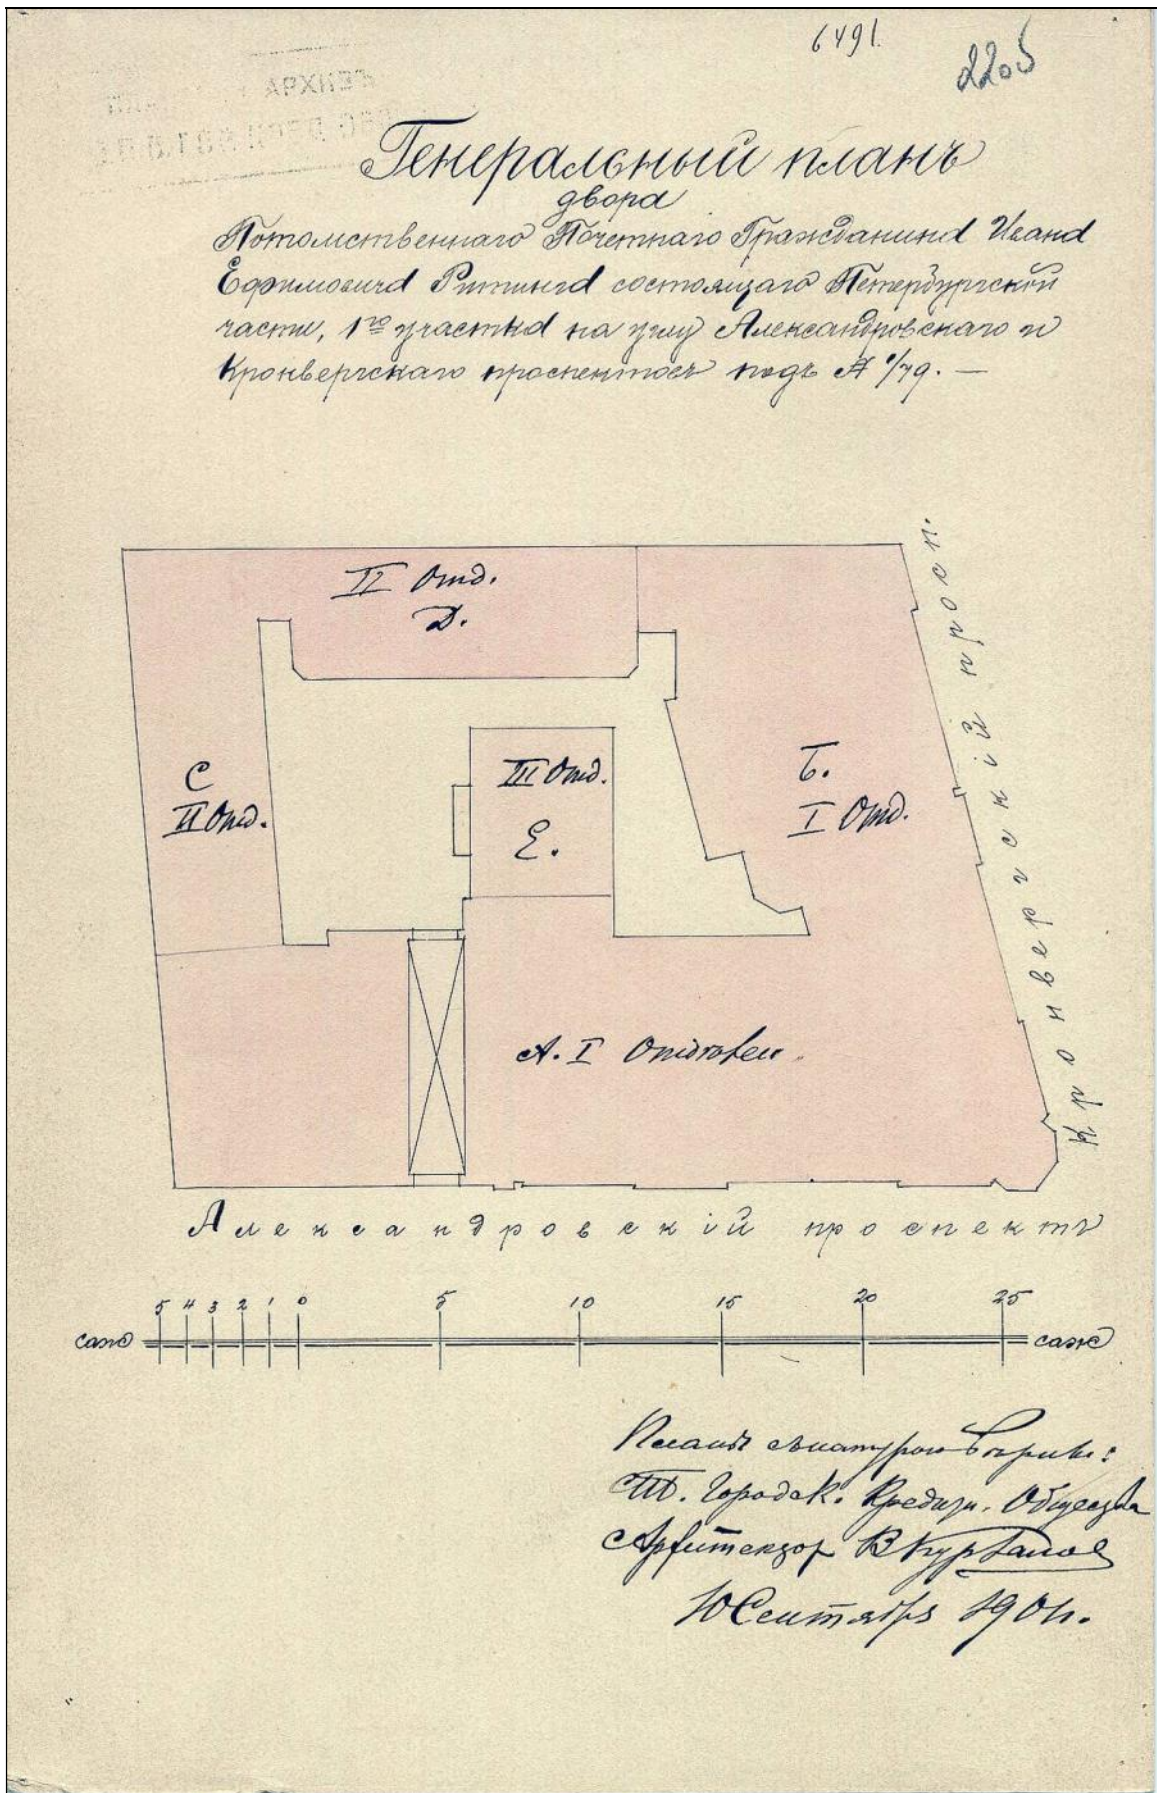 6491.
2205
АРХИВ
Генеральный планъ
двора
Потомственнаго Почетнаго Гражданина Ивана
Ефимовича Ритинга состоящаго Петербургской
части, 1го участка на углу Александровскаго и
Кронверкскаго проспектовъ подъ №
II Отд.
Д.
С
II Отд.
III Отд.
Е.
Б.
I Отд.
А. I Отд
Кронвергскій просп.
Александровскій проспектъ
5 4 3 2 1 0 5 10 15 20 25
саж саж
Планъ съ натурою вѣренъ:
Городск. Кредитн. Общества
Архитекторъ В Курзанов
10 Сентября 1901г.